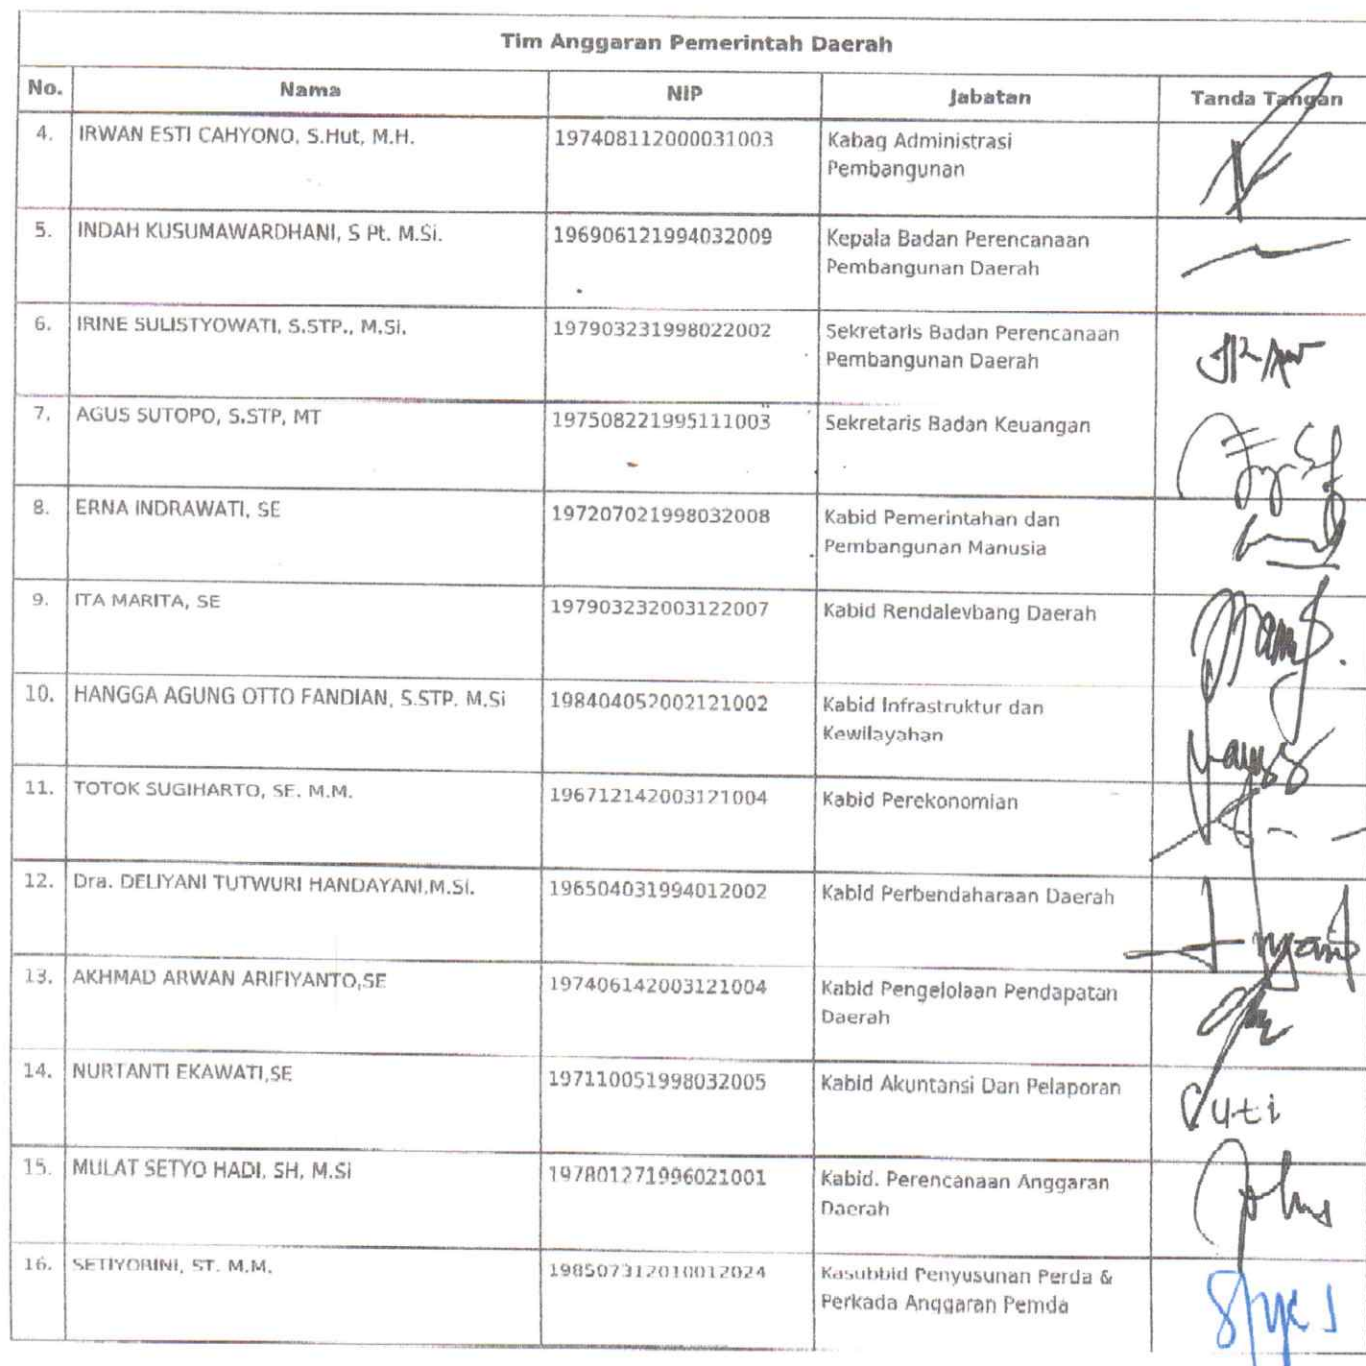 Tim Anggaran Pemerintah Daerah
No. Nama NIP Jabatan Tanda Tangan
4. IRWAN ESTI CAHYONO, S.Hut, M.H. 197408112000031003 Kabag Administrasi
Pembangunan
5. INDAH KUSUMAWARDHANI, S Pt. M.Si. 196906121994032009 Kepala Badan Perencanaan
Pembangunan Daerah
6. IRINE SULISTYOWATI, S.STP., M.Si. 197903231998022002 Sekretaris Badan Perencanaan
Pembangunan Daerah
7. AGUS SUTOPO, S.STP, MT 197508221995111003 Sekretaris Badan Keuangan
8. ERNA INDRAWATI, SE 197207021998032008 Kabid Pemerintahan dan
Pembangunan Manusia
9. ITA MARITA, SE 197903232003122007 Kabid Rendalevbang Daerah
10. HANGGA AGUNG OTTO FANDIAN, S.STP. M.Si 198404052002121002 Kabid Infrastruktur dan
Kewilayahan
11. TOTOK SUGIHARTO, SE. M.M. 196712142003121004 Kabid Perekonomian
12. Dra. DELIYANI TUTWURI HANDAYANI,M.Si. 196504031994012002 Kabid Perbendaharaan Daerah
13. AKHMAD ARWAN ARIFIYANTO,SE 197406142003121004 Kabid Pengelolaan Pendapatan
Daerah
14. NURTANTI EKAWATI,SE 197110051998032005 Kabid Akuntansi Dan Pelaporan
15. MULAT SETYO HADI, SH, M.Si 197801271996021001 Kabid. Perencanaan Anggaran
Daerah
16. SETIYORINI, ST. M.M. 198507312010012024 Kasubbid Penyusunan Perda &
Perkada Anggaran Pemda